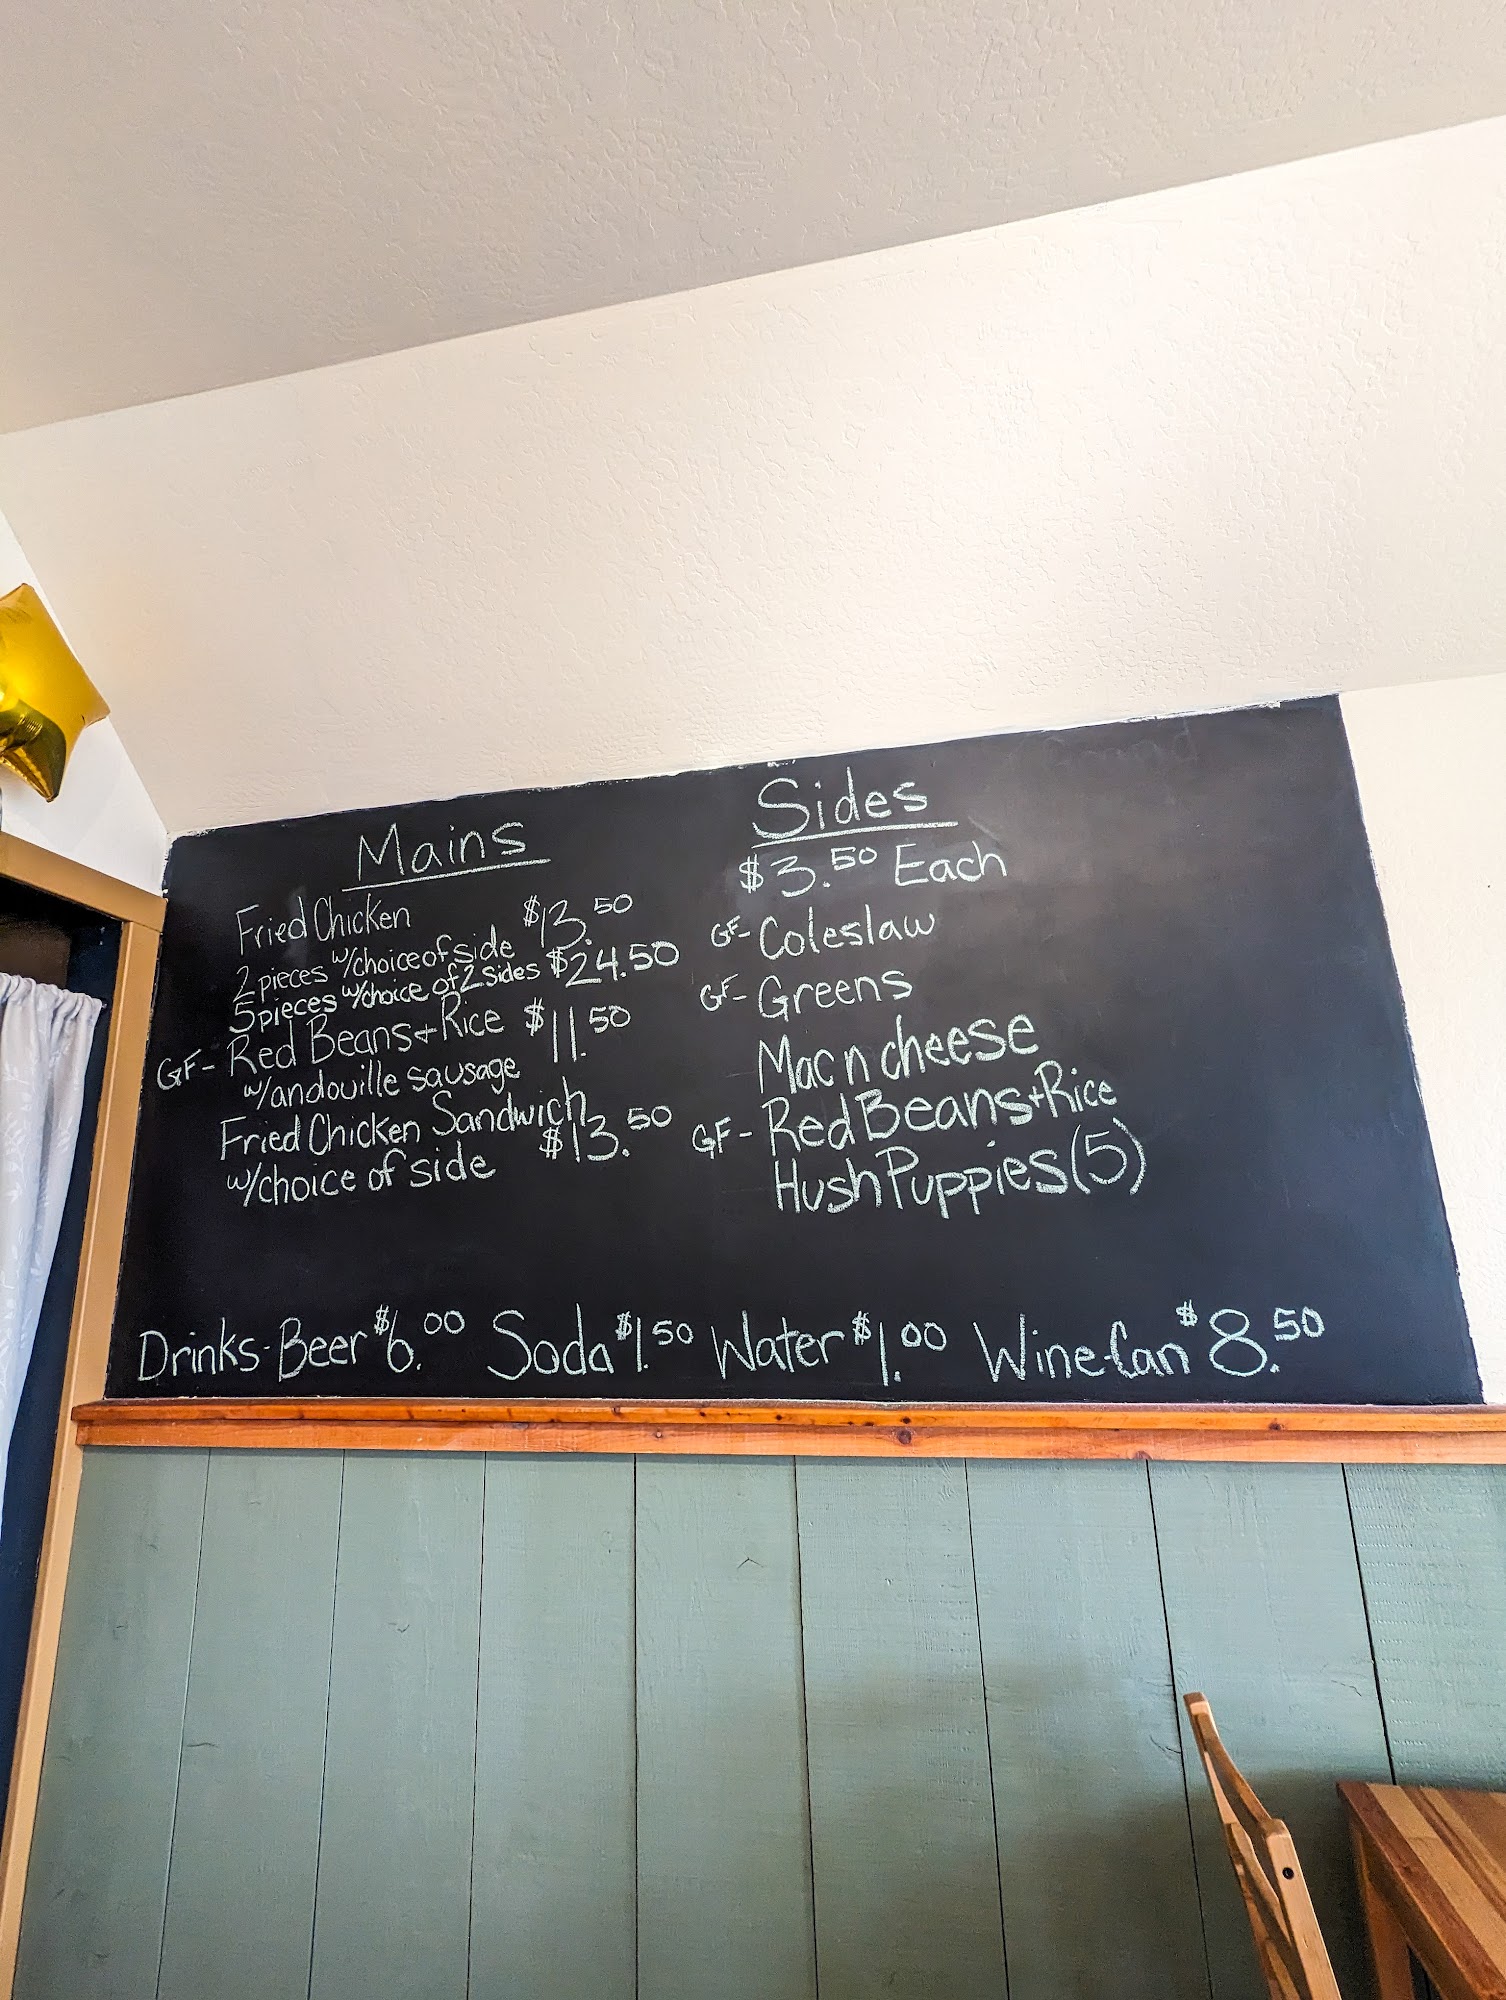 Mains
Fried Chicken
2 pieces w/choice of side $13.50
5 pieces w/choice of 2 sides $24.50
GF- Red Beans + Rice $11.50
w/andouille sausage
Fried Chicken Sandwich
w/choice of side $13.50
Sides
$3.50 Each
GF- Coleslaw
GF- Greens
Mac n cheese
GF- Red Beans + Rice
Hush Puppies (5)
Drinks- Beer $6.00 Soda $1.50 Water $1.00 Wine-Can $8.50